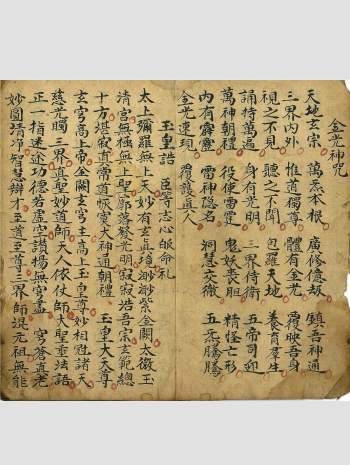 金光神咒
天地玄宗 萬炁本根 廣修億劫 鎮吾神通
三界內外 惟道獨尊 體有金光 覆映吾身
視之不見 聽之不聞 包羅天地 養育群生
誦持萬遍 身有光明 三界侍衛 五帝司迎
萬神朝禮 役使雷霆 鬼妖喪胆 精怪亡形
內有霹靂 雷神隱名 洞慧交徹 五炁騰騰
金光速現 覆護真人
玉皇誥 臣等志心皈命礼
太上彌羅無上天妙有玄真境渺渺紫金闕太微玉
清宮無極無上聖廓落發光明寂寂浩吾宗玄範總
十方堪寂真常道恢宏大神通朝禮 玉皇大天尊
玄穹高上帝金闕玄穹主高上玉皇尊妙相冠諸天
慈光燭三界真聖妙道師天人依仗師大聖垂法語
正一指迷途功德若虛空讚揚無窮盡 穹蒼真老
妙圓清淨智慧辯才至道至尊三界師混元祖無能